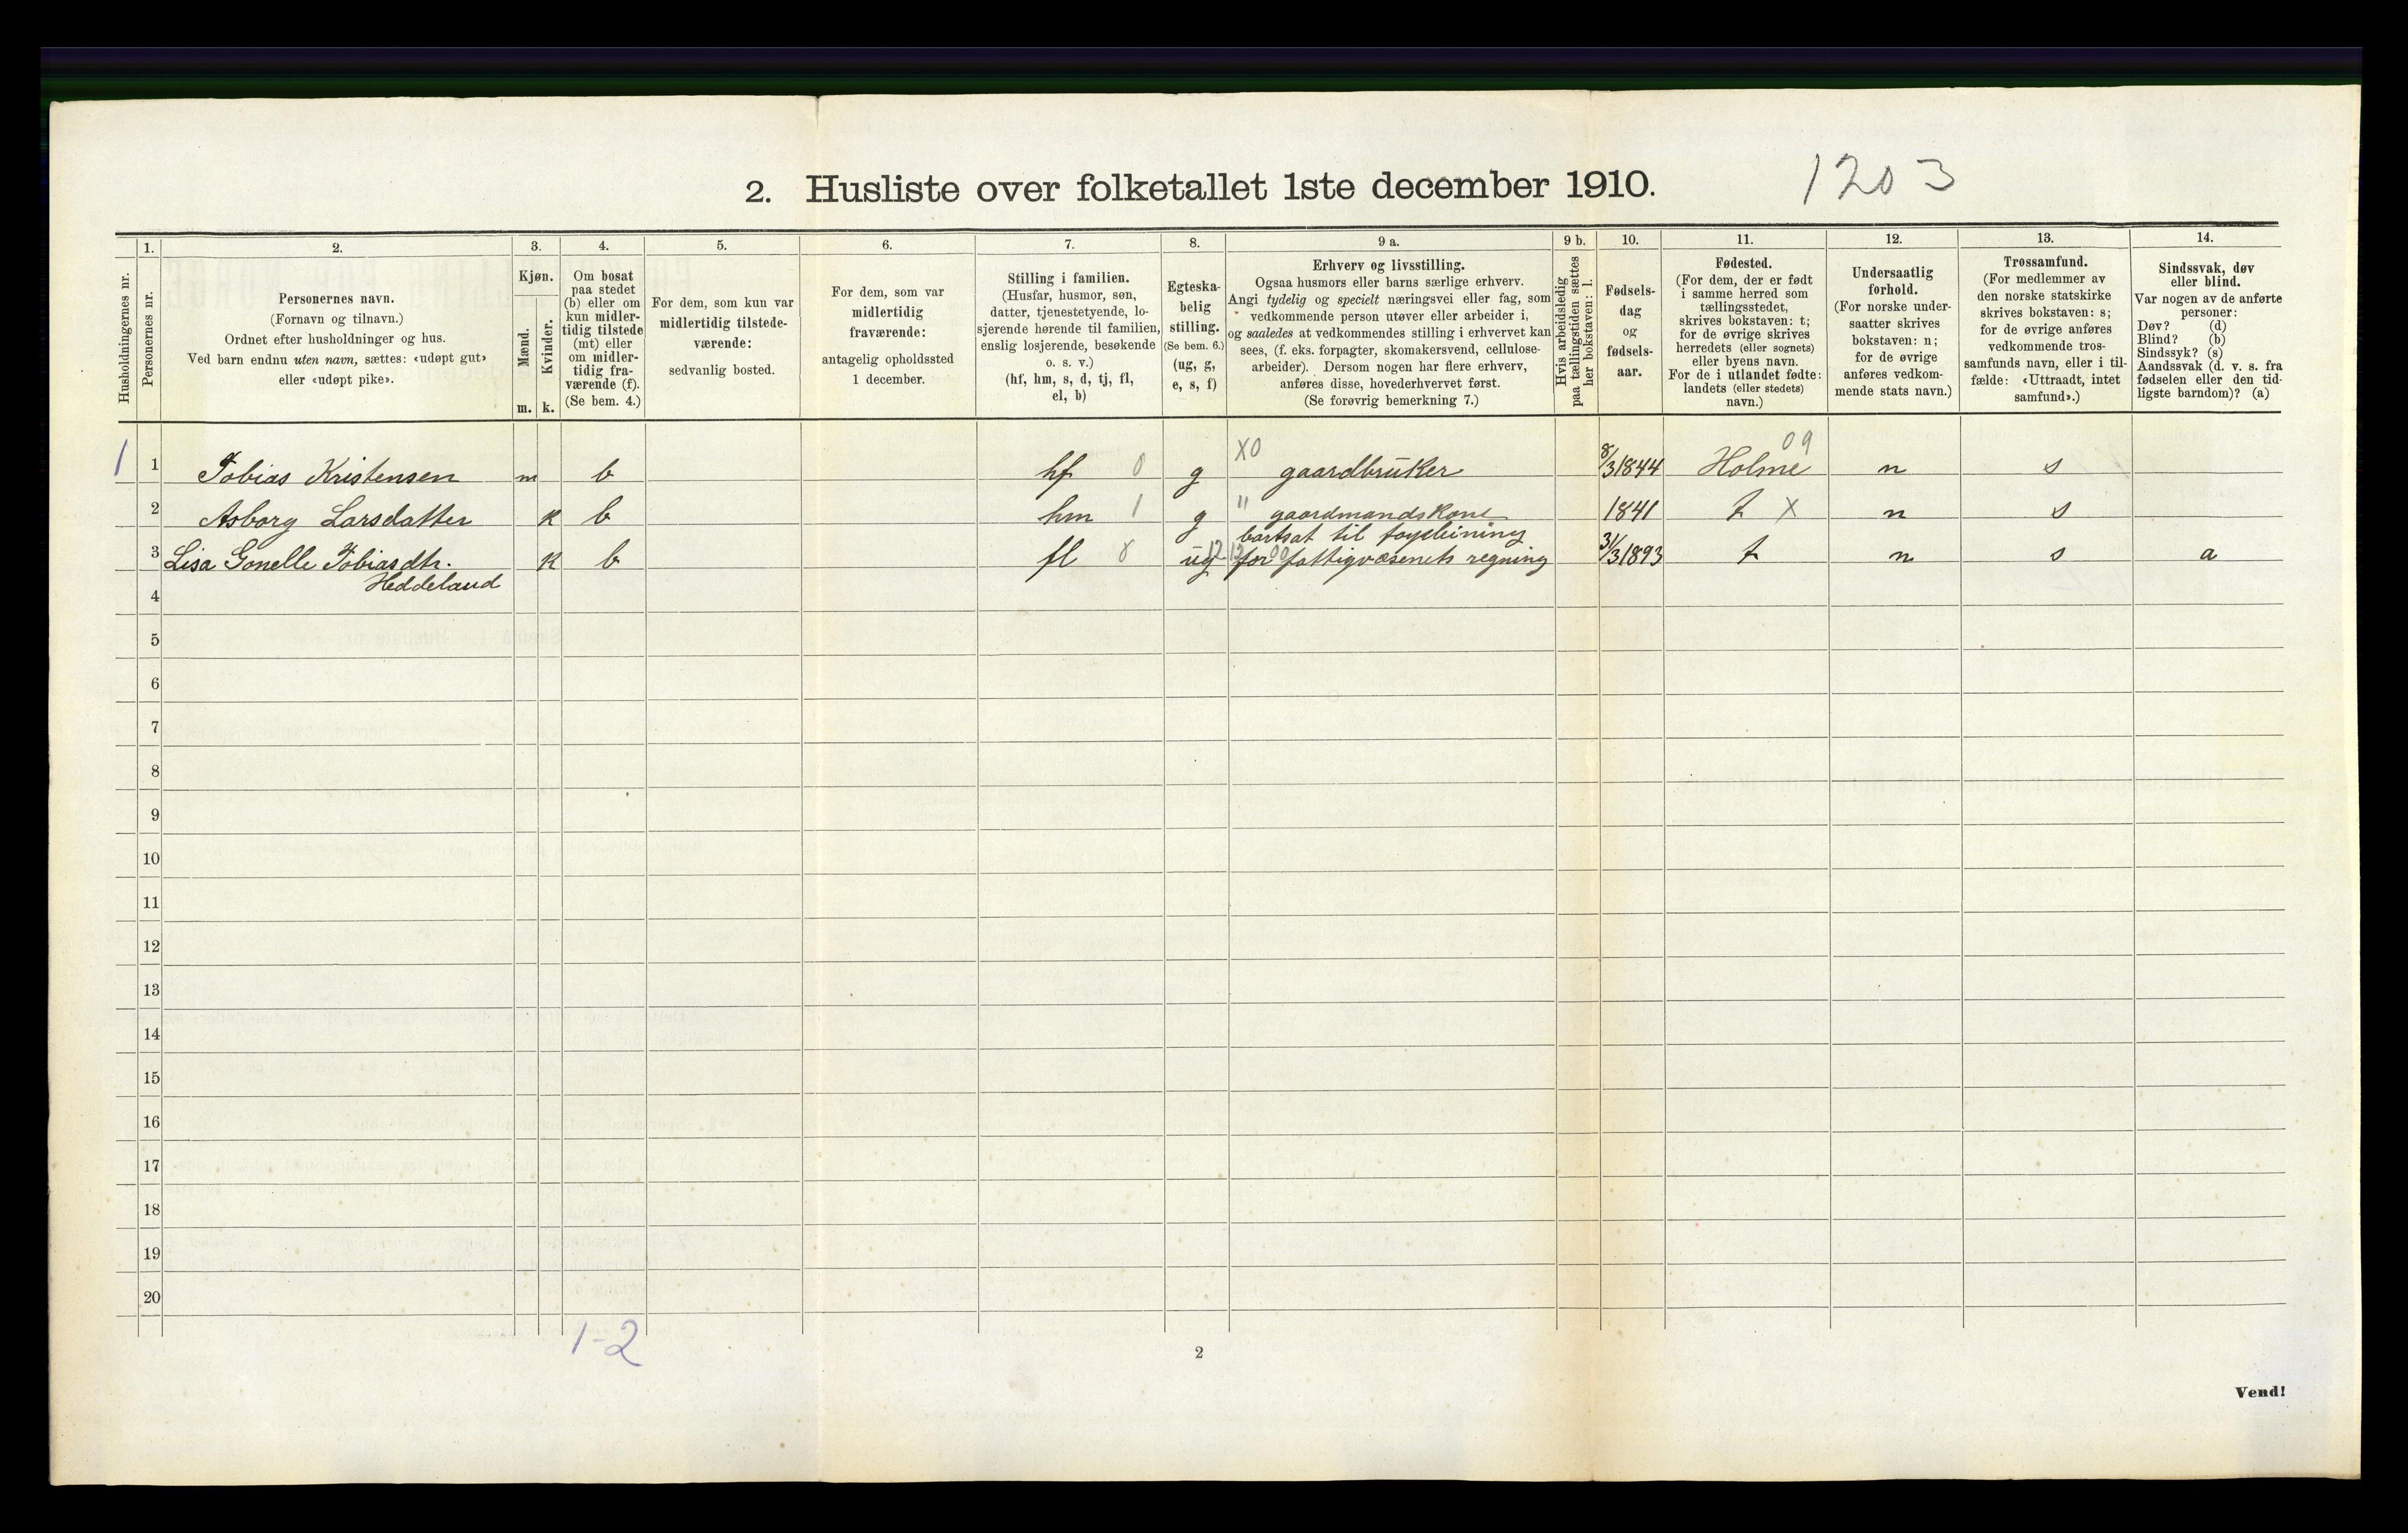 1203
2. Husliste over folketallet 1ste december 1910.
Husholdningernes nr.
1.
Personernes nr.
2.
Personernes navn.
(Fornavn og tilnavn.)
Ordnet efter husholdninger og hus.
Ved barn endnu uten navn, sættes: «udøpt gut»
eller «udøpt pike».
3.
Kjøn.
Mænd.
Kvinder.
m. k.
4.
Om bosat
paa stedet
(b) eller om
kun midler-
tidig tilstede
(mt) eller
om midler-
tidig fra-
værende (f).
(Se bem. 4.)
5.
For dem, som kun var
midlertidig tilstede-
værende:
sedvanlig bosted.
6.
For dem, som var
midlertidig
fraværende:
antagelig opholdssted
1 december.
7.
Stilling i familien.
(Husfar, husmor, søn,
datter, tjenestetyende, lo-
sjerende hørende til familien,
enslig losjerende, besøkende
o. s. v.)
(hf, hm, s, d, tj, fl,
el, b)
8.
Egteska-
belig
stilling.
(Se bem. 6.)
(ug, g,
e, s, f)
9 a.
Erhverv og livsstilling.
Ogsaa husmors eller barns særlige erhverv.
Angi tydelig og specielt næringsvei eller fag, som
vedkommende person utøver eller arbeider i,
og saaledes at vedkommendes stilling i erhvervet kan
sees, (f. eks. forpagter, skomakersvend, cellulose-
arbeider). Dersom nogen har flere erhverv,
anføres disse, hovederhvervet først.
(Se forøvrig bemerkning 7.)
9 b.
Hvis arbeidsledig
paa tællingstiden sættes
her bokstaven: l.
10.
Fødsels-
dag
og
fødsels-
aar.
11.
Fødested.
(For dem, der er født
i samme herred som
tællingsstedet,
skrives bokstaven: t;
for de øvrige skrives
herredets (eller sognets)
eller byens navn.
For de i utlandet fødte:
landets (eller stedets)
navn.)
12.
Undersaatlig
forhold.
(For norske under-
saatter skrives
bokstaven: n;
for de øvrige
anføres vedkom-
mende stats navn.)
13.
Trossamfund.
(For medlemmer av
den norske statskirke
skrives bokstaven: s;
for de øvrige anføres
vedkommende tros-
samfunds navn, eller i til-
fælde: «Uttraadt, intet
samfund».)
14.
Sindssvak, døv
eller blind.
Var nogen av de anførte
personer:
Døv? (d)
Blind? (b)
Sindssyk? (s)
Aandssvak (d. v. s. fra
fødselen eller den tid-
ligste barndom)? (a)
X0 09
1 1 Tobias Kristensen m b hf 0 g gaardbruker 8/3 1844 Holme n s
2 Asborg Larsdatter k b hm 1 g " gaardmandskone 1841 t X n s
bortsat til
3 Lisa Gonelle Tobiasdtr. k b fl ug for fattigvæsenets regning 31/3 1893 t n s a
Heddeland
4
5
6
7
8
9
10
11
12
13
14
15
16
17
18
19
20
1-2
2
Vend!